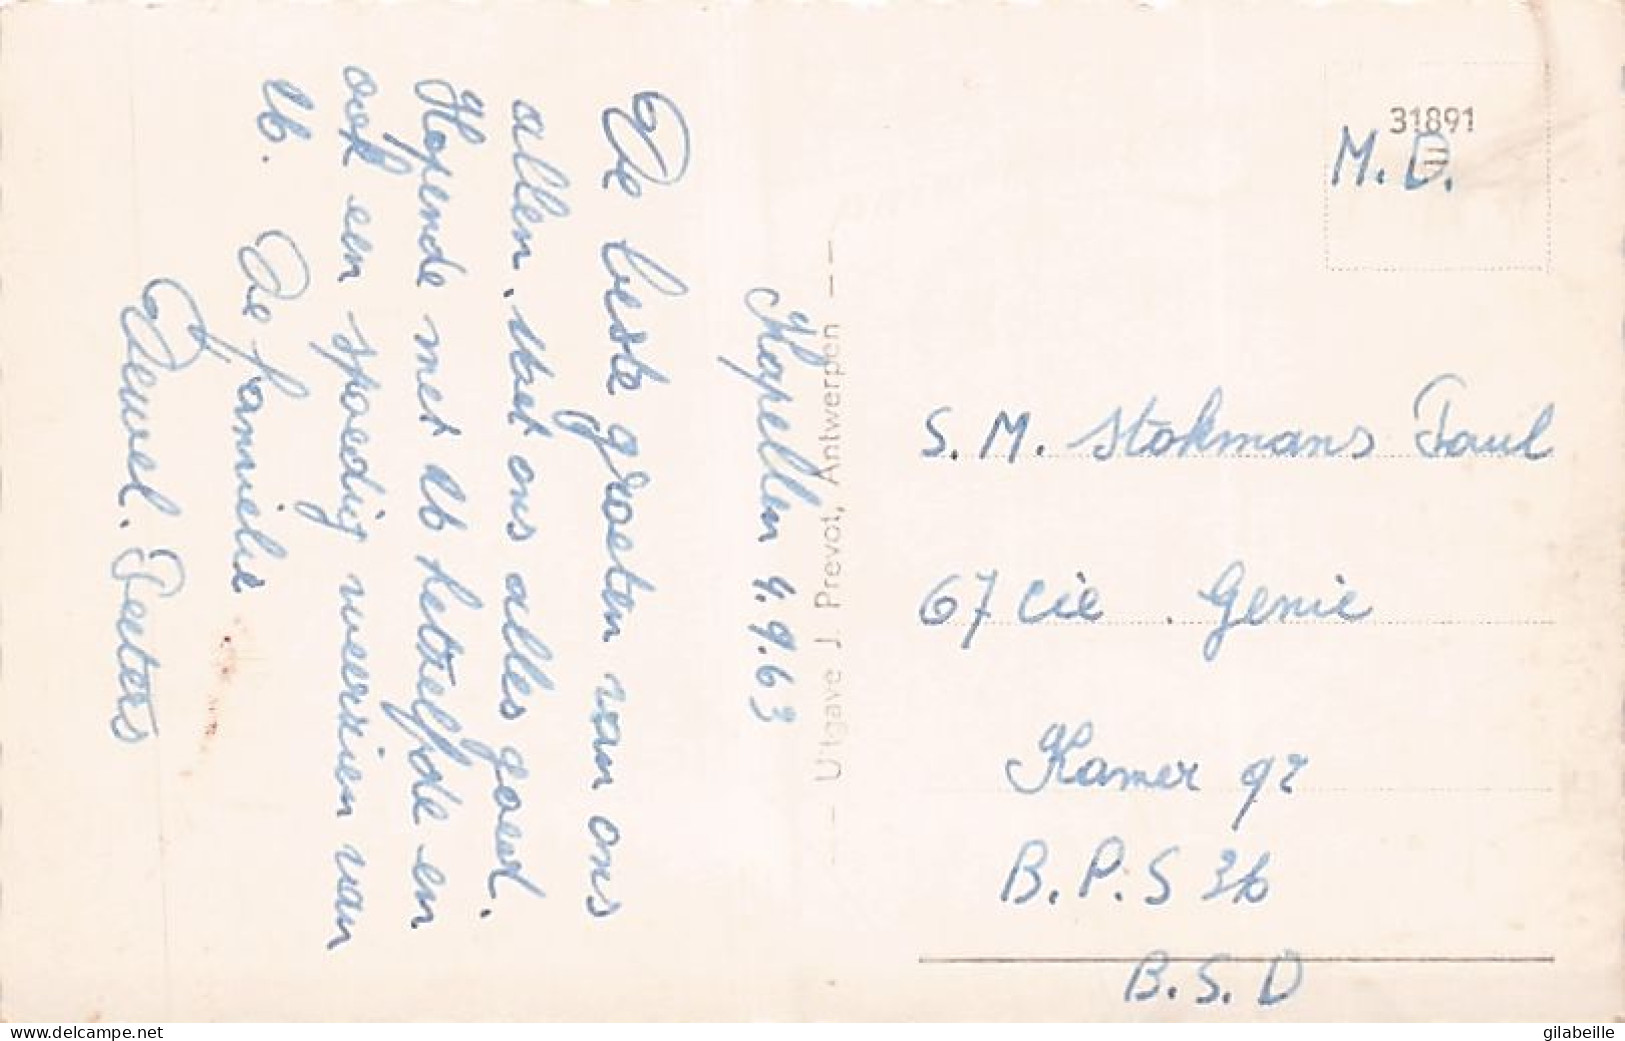 Kapellen 4.9.63
De beste groeten van ons
allen. Met ons alles goed.
Hopende met U hetzelfde en
ook een spoedig weerzien van
U. De familie
Peeters
Uitgave J. Prevot, Antwerpen
31891
M.D.
S.M. Stokmans Paul
67 Cie. Genie
Kamer 97
B.P.S 36
B.S.D
www.delcampe.net
gilabeille